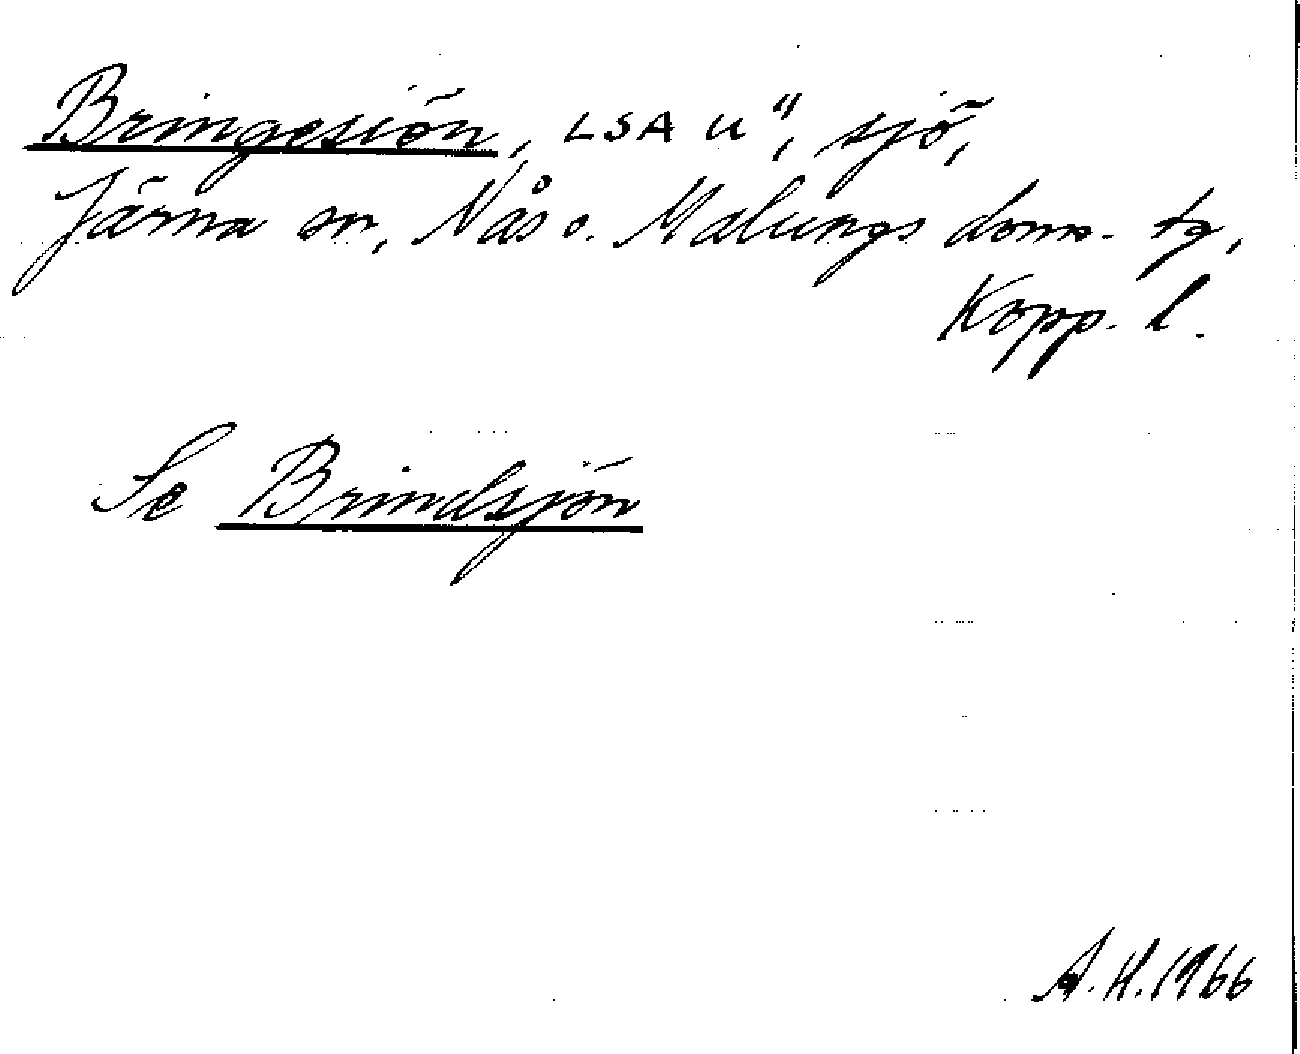 Bringesiön, LSA U", sjö,
Järna sn, Nås o. Malungs doms. tg,
Kopp. l.
Se Brindsjön
A.H. 1966